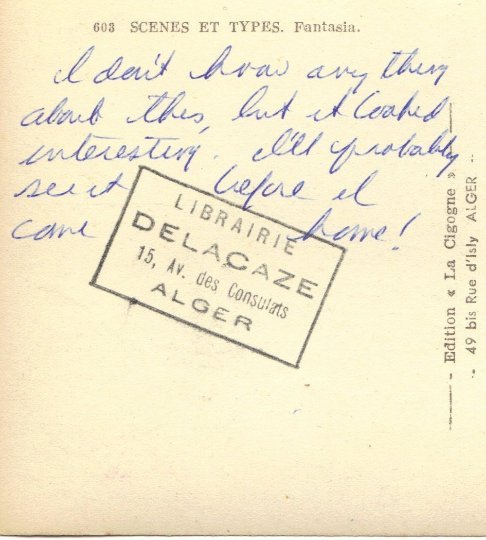 603 SCENES ET TYPES. Fantasia.
I don't know anything
about this, but it looked
interesting. I'll probably
see it before I
come home!
LIBRAIRIE
DELACAZE
15, Av. des Consulats
ALGER
- Edition « La Cigogne » -
-- 49 bis Rue d'Isly ALGER --